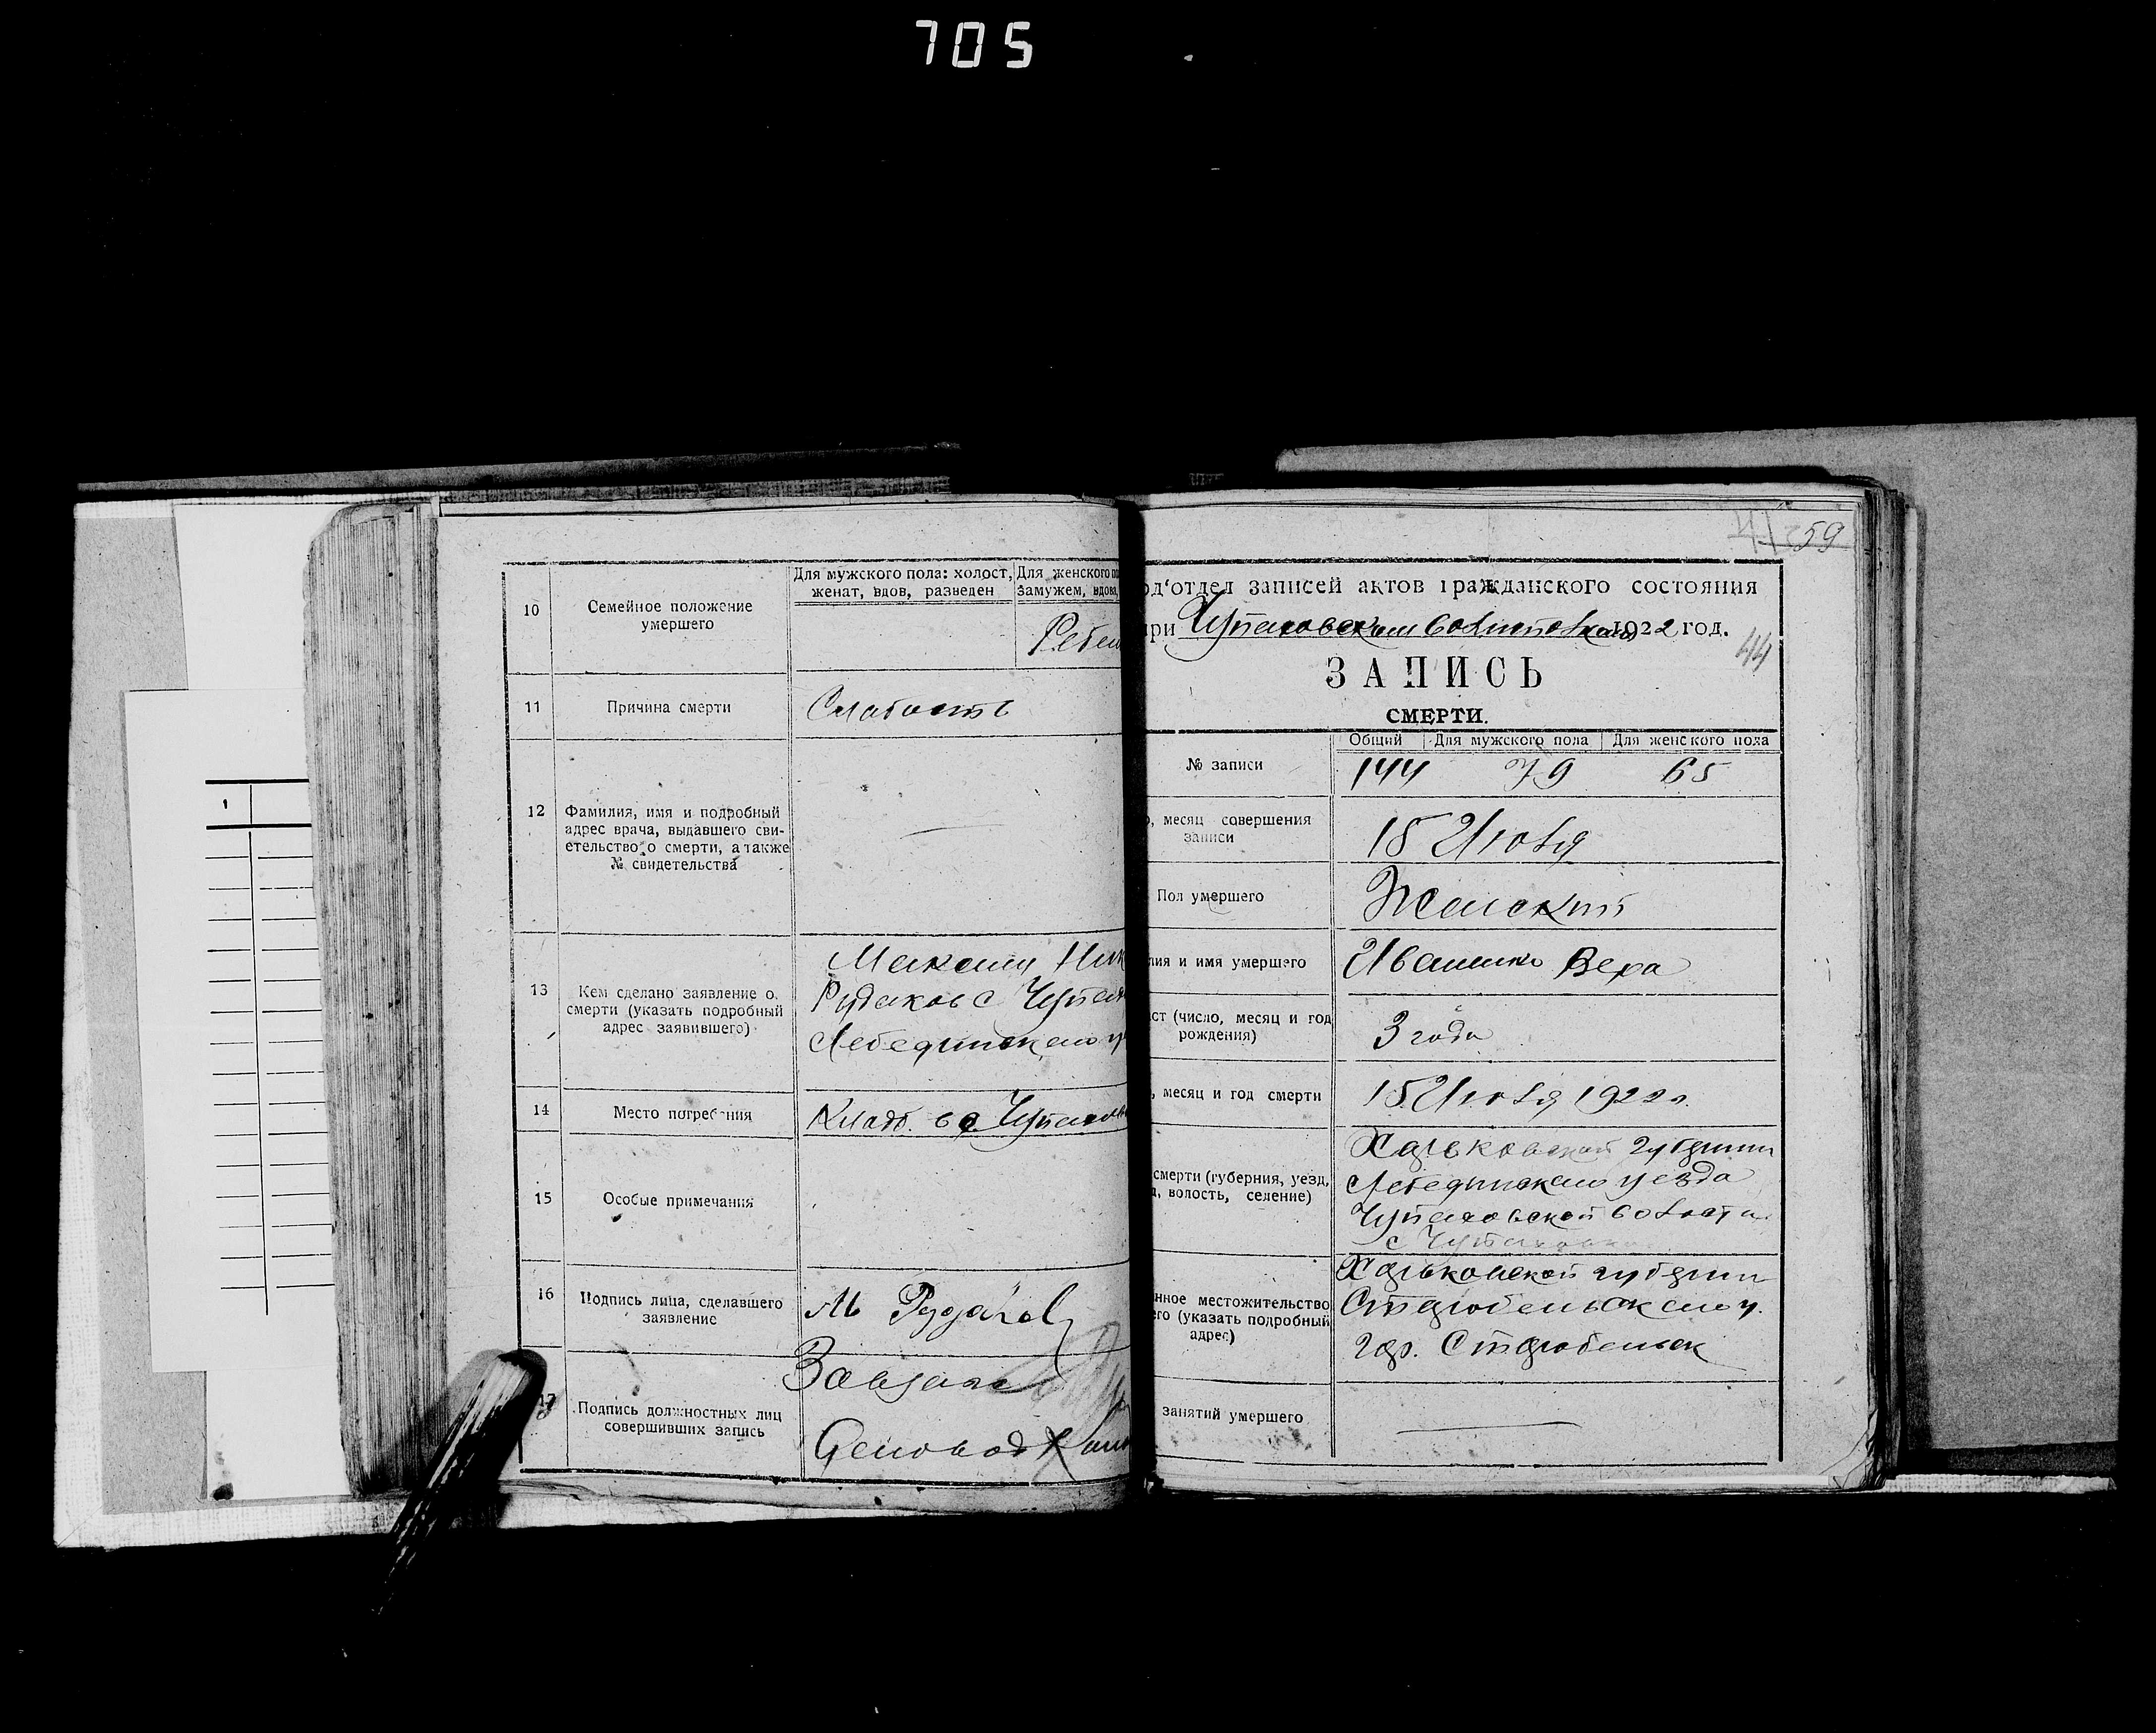 705
10
Семейное положение
умершего
Для мужского пола: холост,
женат, вдов, разведен
Для женского по
замужем, вдова,
Ребен
11
Причина смерти
Слабость
12
Фамилия, имя и подробный
адрес врача, выдавшего сви-
етельство о смерти, а также
№ свидетельства
13
Кем сделано заявление о
смерти (указать подробный
адрес заявившего)
Максим Ник
Рудаков с Чупах
Лебединского у
14
Место погребения
Кладб. в с Чупахов
15
Особые примечания
16
Подпись лица, сделавшего
заявление
М Рудаков
17
Подпись должностных лиц
совершивших запись
Завзагс
Деловод
59
од'отдел записей актов гражданского состояния
при Чупаховском волисполкоме 1922 год.
44
ЗАПИСЬ
СМЕРТИ.
Общий Для мужского пола Для женского пола
№ записи
144 79 65
, месяц совершения
записи
15 Июля
Пол умершего
Женский
лия и имя умершего
Ивашко Вера
ст (число, месяц и год
рождения)
3 года
, месяц и год смерти
15 Июля 1922 г.
смерти (губерния, уезд,
, волость, селение)
Харьковской губернии
Лебединского уезда
Чупаховской волости
с Чупаховка
нное местожительство
его (указать подробный
адрес)
Харьковской губернии
Старобельского у.
гор. Старобельск
занятий умершего
1